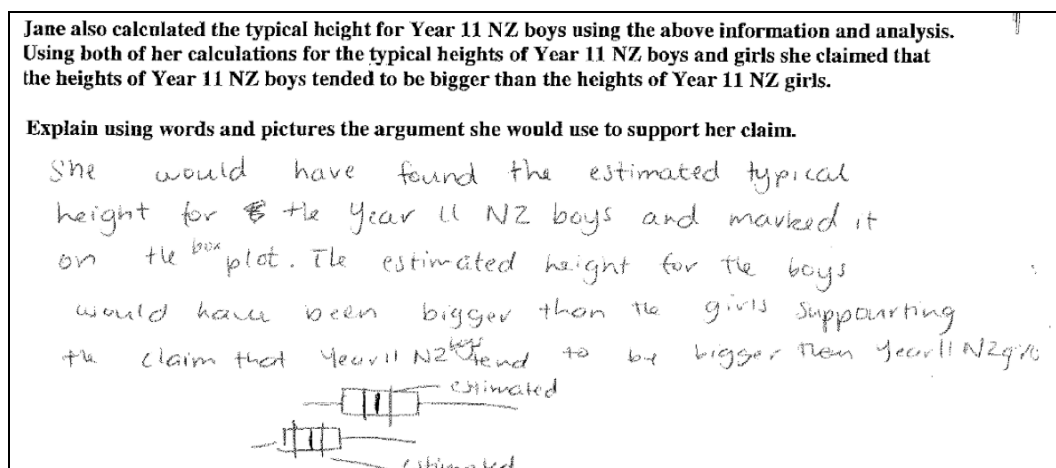 Jane also calculated the typical height for Year 11 NZ boys using the above information and analysis.
Using both of her calculations for the typical heights of Year 11 NZ boys and girls she claimed that
the heights of Year 11 NZ boys tended to be bigger than the heights of Year 11 NZ girls.
Explain using words and pictures the argument she would use to support her claim.
She would have found the estimated typical
height for the Year 11 NZ boys and marked it
on the box plot. The estimated height for the boys
would have been bigger than the girls suppourting
the claim that Year 11 NZ boys tend to be bigger then Year 11 NZ girls
estimated
estimated